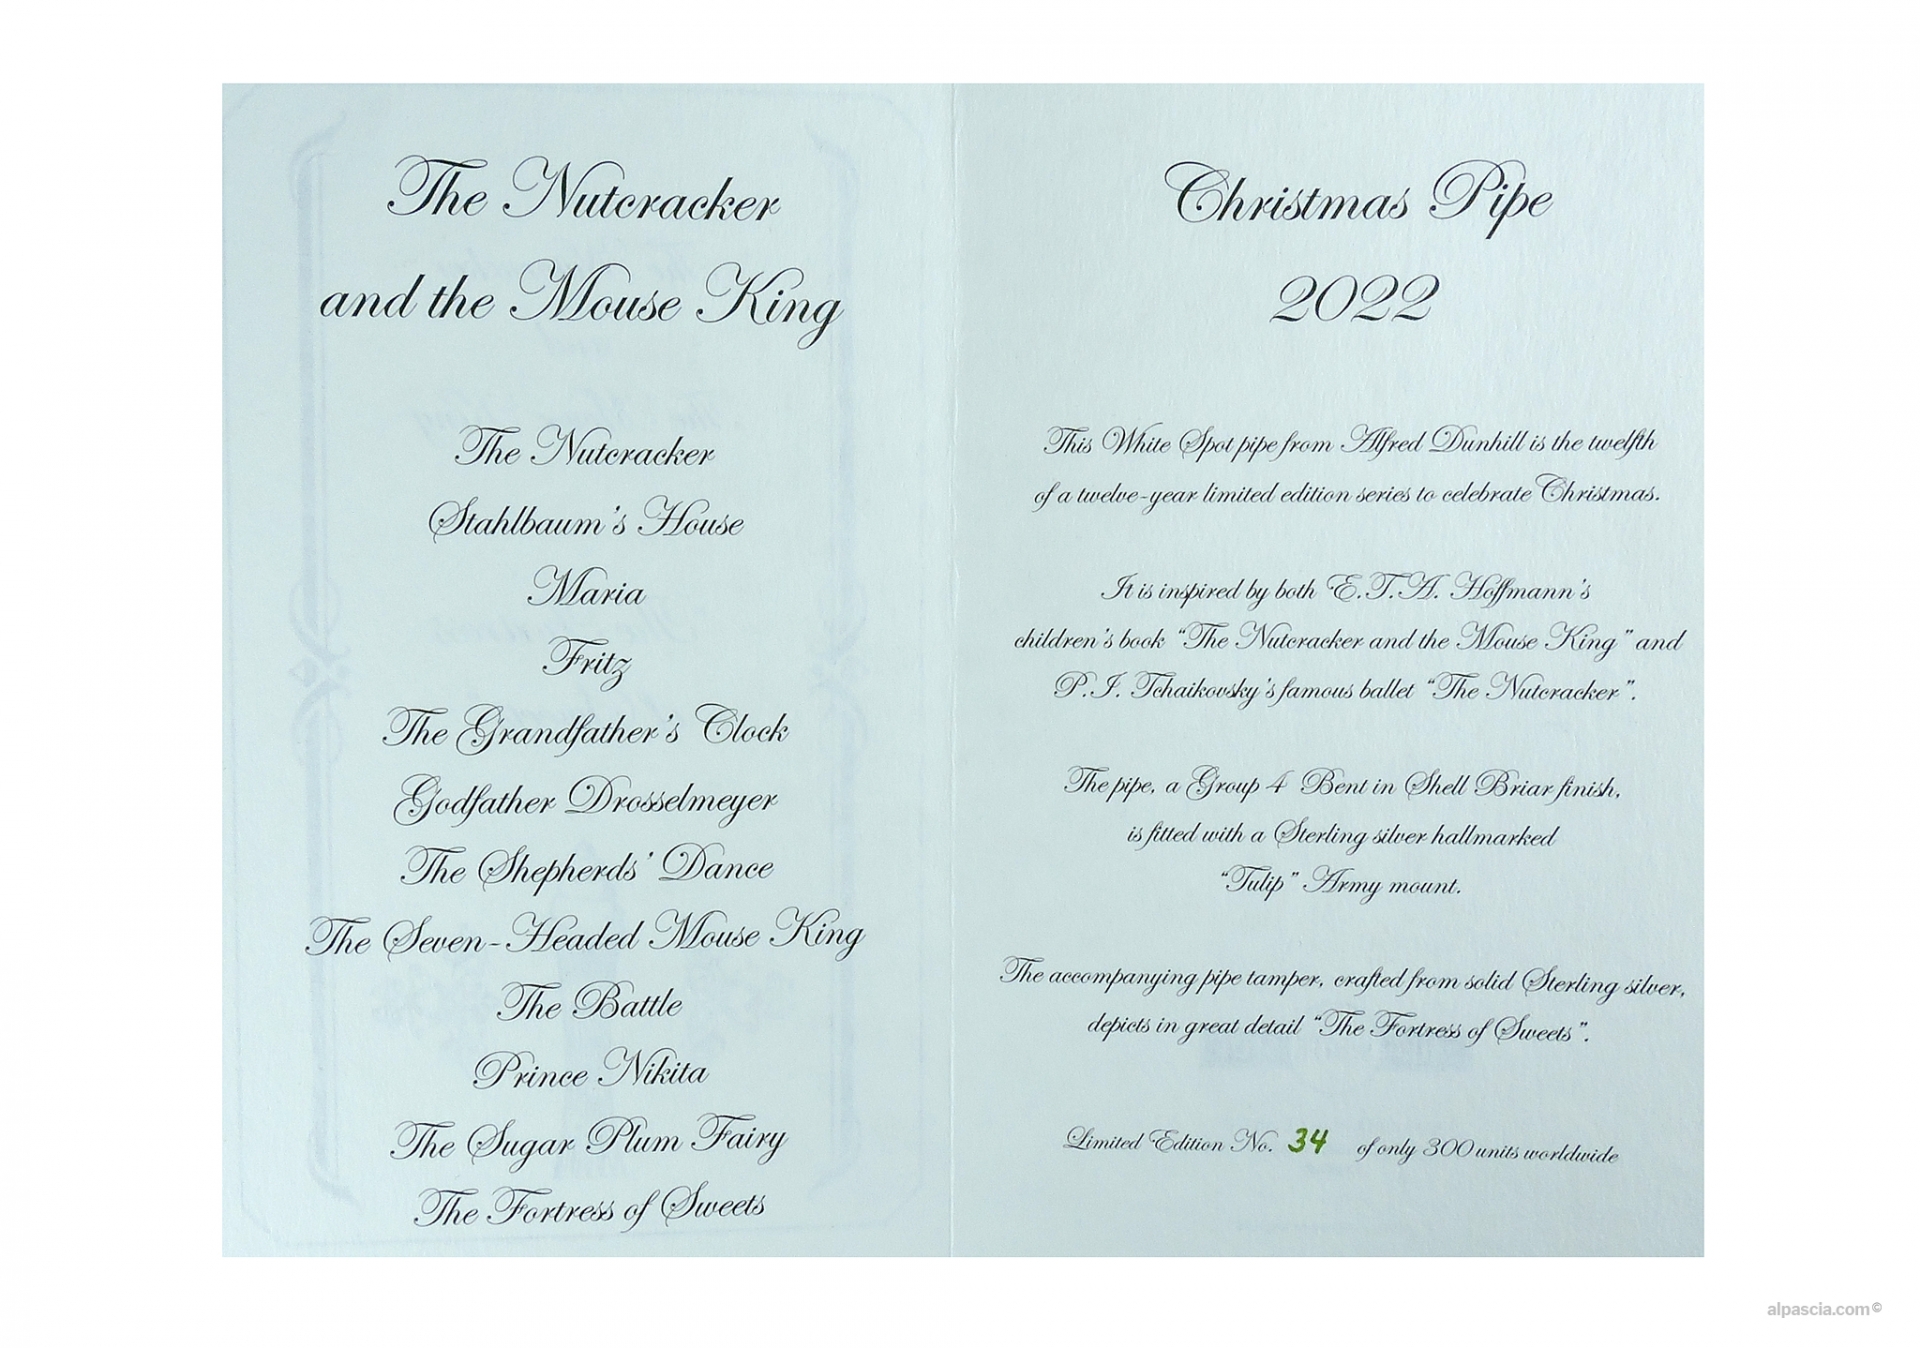 The Nutcracker
and the Mouse King
The Nutcracker
Stahlbaum's House
Maria
Fritz
The Grandfather's Clock
Godfather Drosselmeyer
The Shepherds' Dance
The Seven-Headed Mouse King
The Battle
Prince Nikita
The Sugar Plum Fairy
The Fortress of Sweets
Christmas Pipe
2022
This White Spot pipe from Alfred Dunhill is the twelfth
of a twelve-year limited edition series to celebrate Christmas.
It is inspired by both E.T.A. Hoffmann's
children's book "The Nutcracker and the Mouse King" and
P.I. Tchaikovsky's famous ballet "The Nutcracker".
The pipe, a Group 4 Bent in Shell Briar finish,
is fitted with a Sterling silver hallmarked
"Tulip" Army mount.
The accompanying pipe tamper, crafted from solid Sterling silver,
depicts in great detail "The Fortress of Sweets".
Limited Edition No. 34 of only 300 units worldwide
alpascia.com©